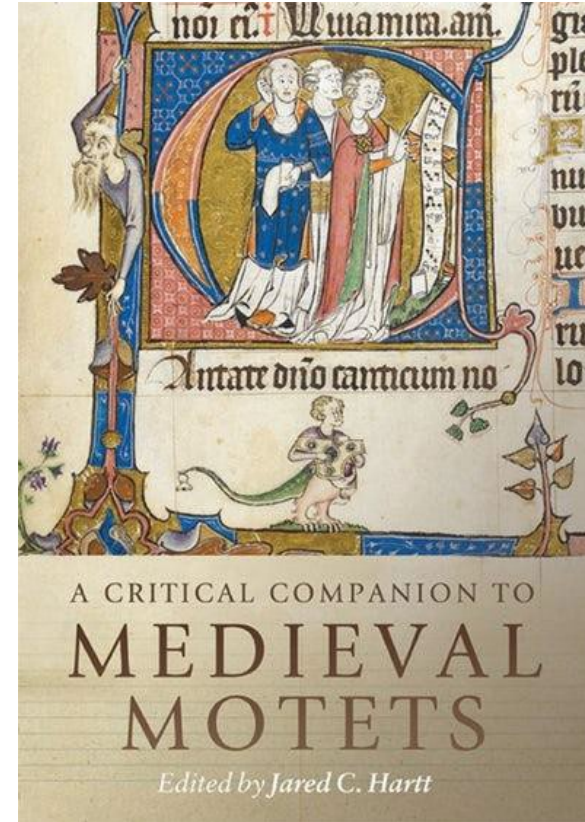 noi ei. t Uiuamira. am.
gra
ple
rū
nu
ue
Antate dn̄o canticum no
ru
lo
A CRITICAL COMPANION TO
MEDIEVAL
MOTETS
Edited by Jared C. Hartt